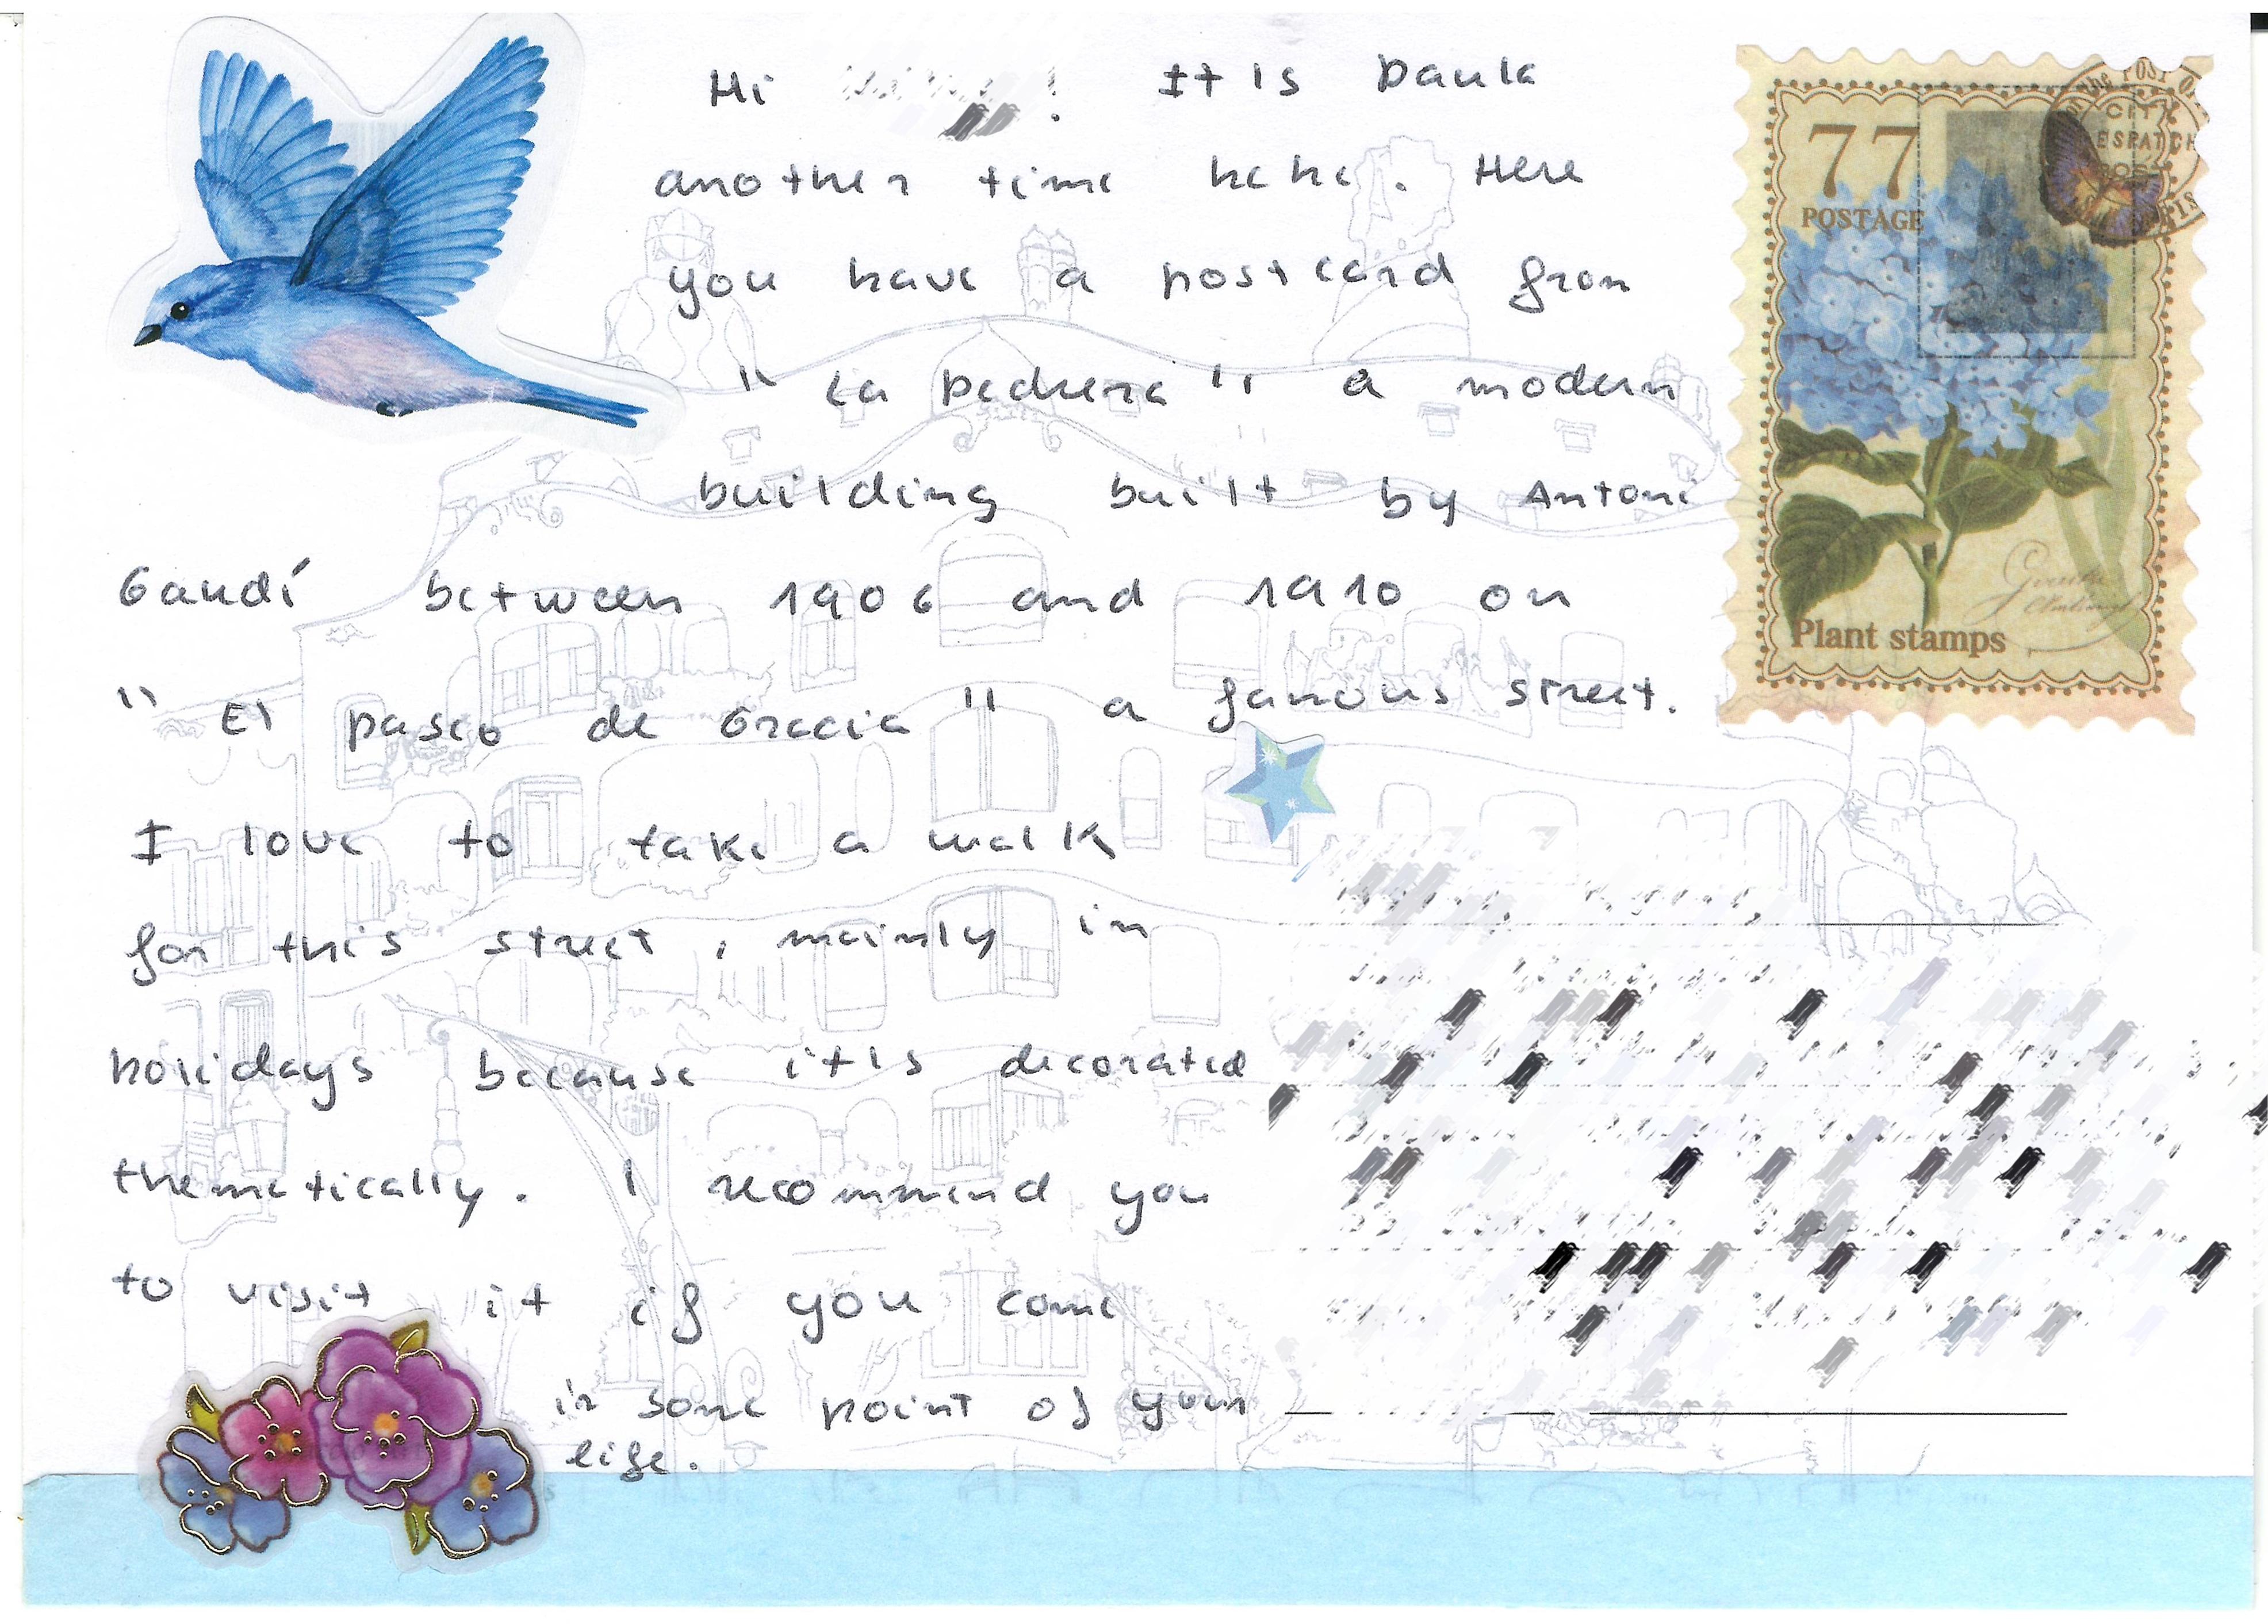 Hi ! It is Paula
another time hehe. Here
you have a postcard from
"La pedrera" a modern
building built by Antoni
Gaudí between 1906 and 1910 on
"El paseo de Gracia" a famous street.
I love to take a walk
for this street, mainly in
holidays because it is decorated
thematically. I recommend you
to visit it if you come
in some point of your
life.
77
POSTAGE
CITY
ESPATCH
Plant stamps